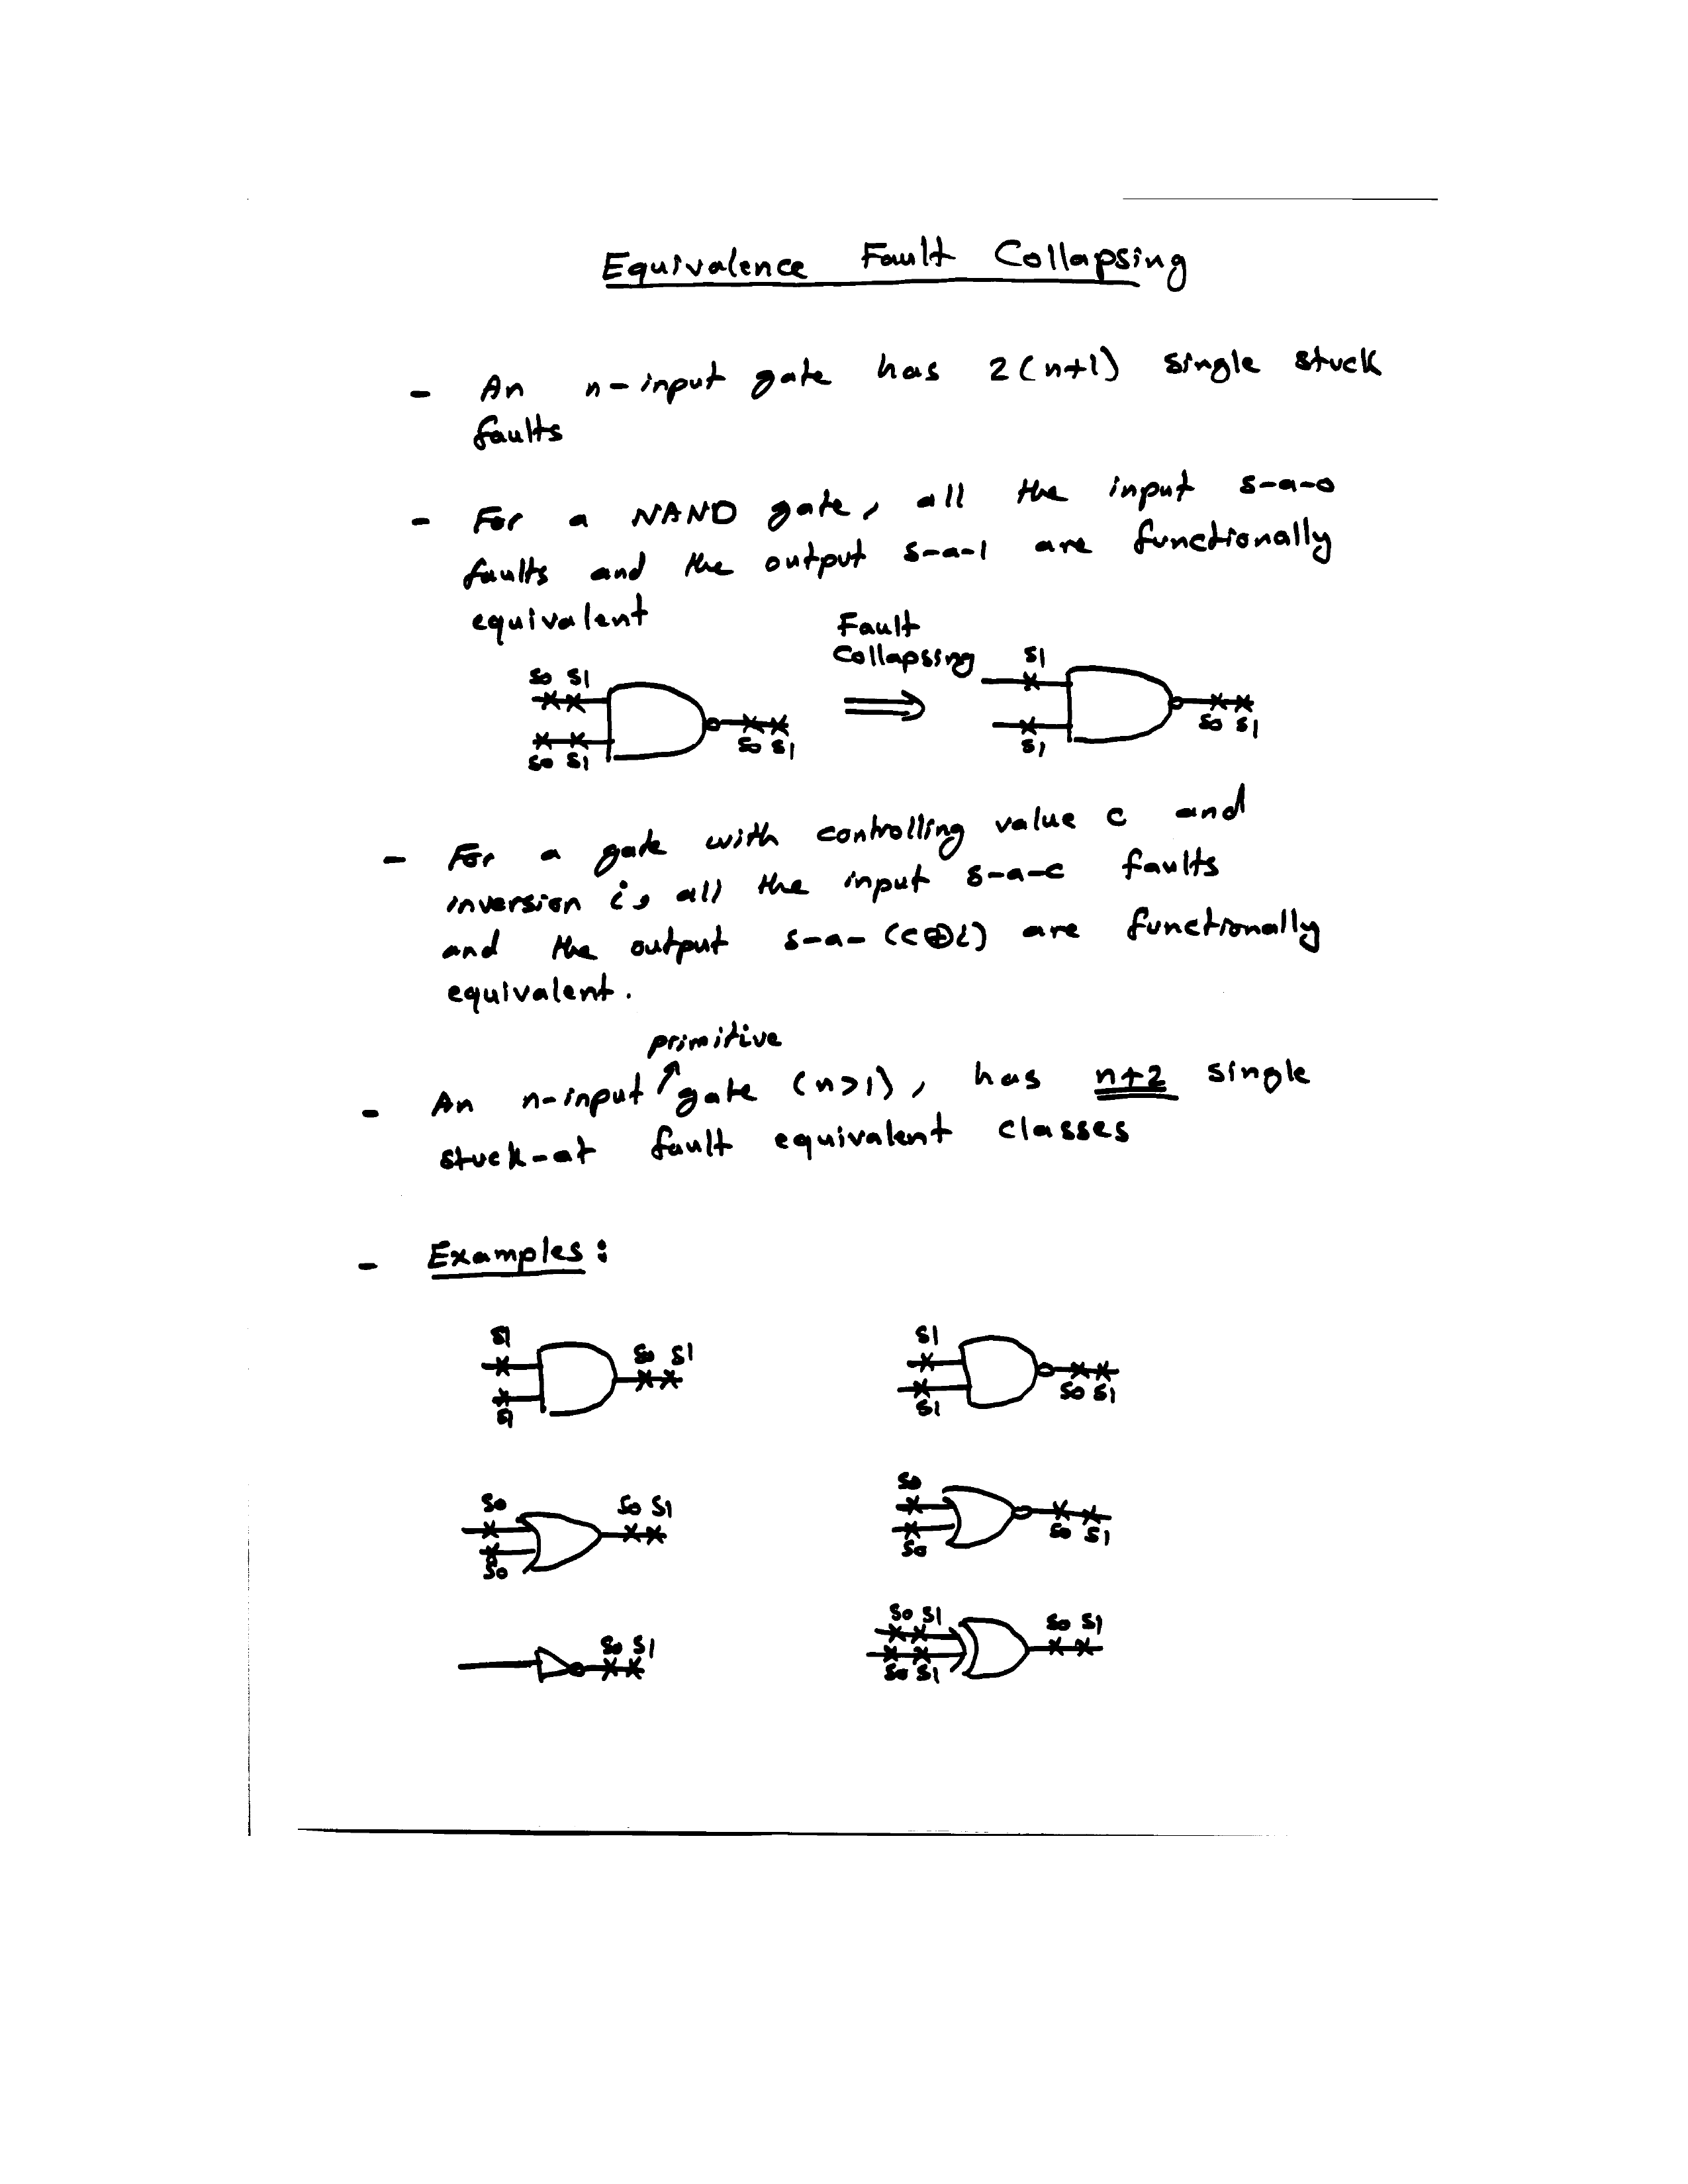 Equivalence Fault Collapsing
- An n-input gate has 2(n+1) single stuck
faults
- For a NAND gate, all the input s-a-0
faults and the output s-a-1 are functionally
equivalent
Fault
Collapsing
s0 s1
s0 s1
s0 s1
⟹
s1
s1
s0 s1
- For a gate with controlling value c and
inversion i, all the input s-a-c faults
and the output s-a-(c⊕i) are functionally
equivalent.
primitive
- An n-input ↗ gate (n>1), has n+2 single
stuck-at fault equivalent classes
- Examples:
s1
s0 s1
s1
s1
s0 s1
s1
s0
s0 s1
s0
s0
s0 s1
s0
s0 s1
s0 s1
s0 s1
s0 s1